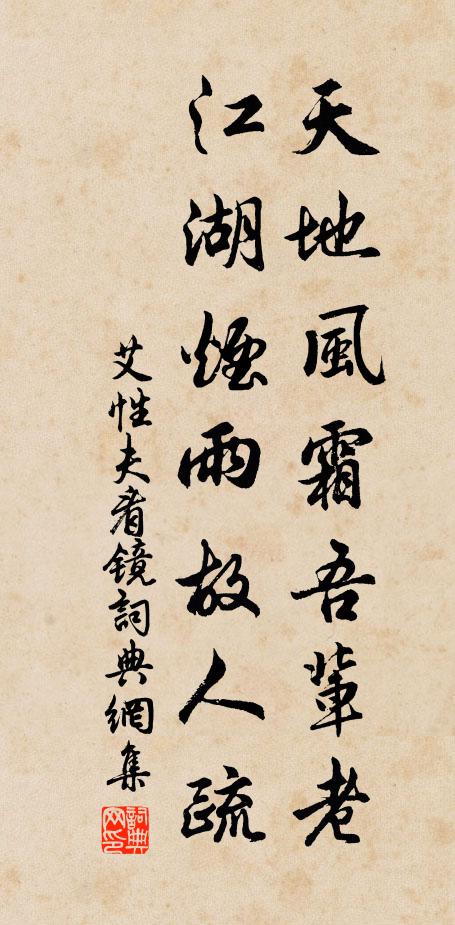 天地風霜吾輩老
江湖煙雨故人疏
艾性夫看鏡詞典網集
詞典網印